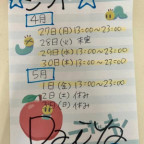 シフト
4月
27日(月)13:00〜23:00
28日(火)
29日(水)13:00〜23:00
30日(木)13:00〜23:00
5月
1日(金)13:00〜23:00
2日(土)休み
日(日)休み